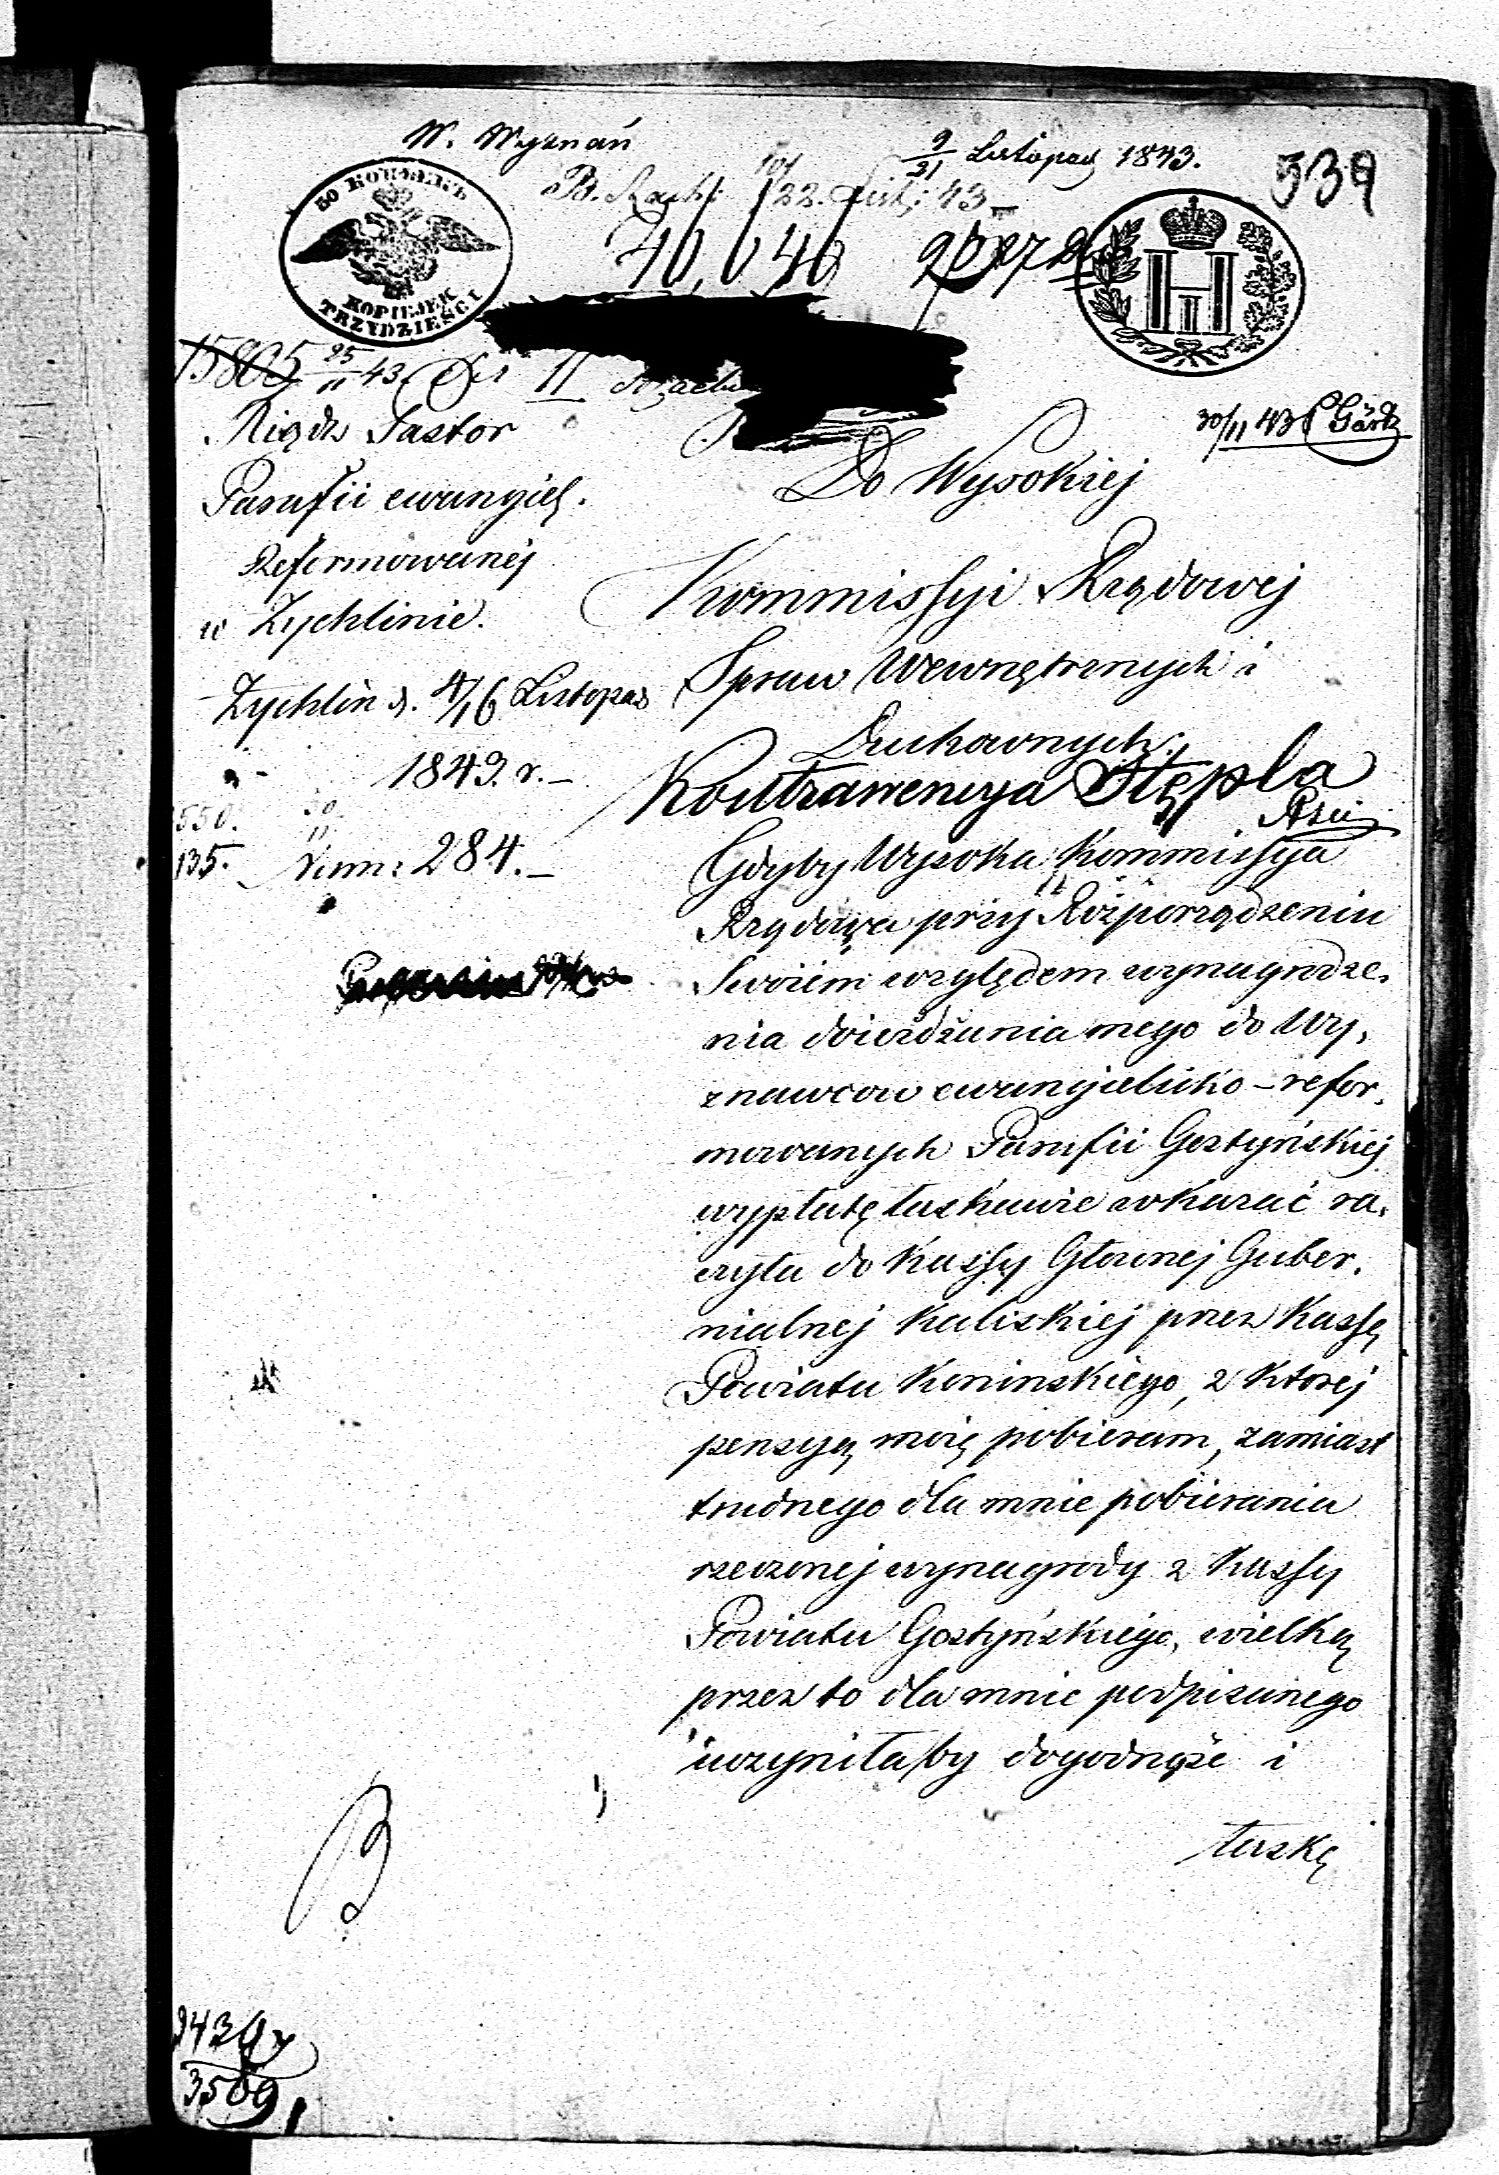 W. Wyznań
9/21 Listopad 1843.
339
22. List; 43
30 КОПѢЕКЪ
KOPIEJEK
TRZYDZIEŚCI
40,046
15805 25/11 43
II
30/11 43
Xiądz Pastor
Parafii ewangiel.
Reformowanéj
w Żychlinie.
Żychlin d. 4/16 Listopad
1843. r.
Num: 284.
135.
Do Wysokiej
Kommissyi Rządowej
Spraw Wewnętrznych i
Duchownych.
Kontrawencya Stępla
Gdyby Wysoka Kommissya
Rządowa przy Rozporządzeniu
Swoiém względem wynagrodze-
nia doieżdżania mego do Wy-
znawcow ewangielicko-refor-
mowanych Parafii Gostyńskiej
wypłatę łaskawie wkazać ra-
czyła do Kassy Głownej Guber-
nialnej Kaliskiej przez Kassę
Powiatu Koninskiego, z Ktorej
pensyą moię pobieram, zamiast
trudnego dla mnie pobierania
rzeczonej wynagrody z Kassy
Powiatu Gostyńskiego, wielką
przez to dla mnie podpisanego
uczyniłaby dogodność i
łaskę
3509